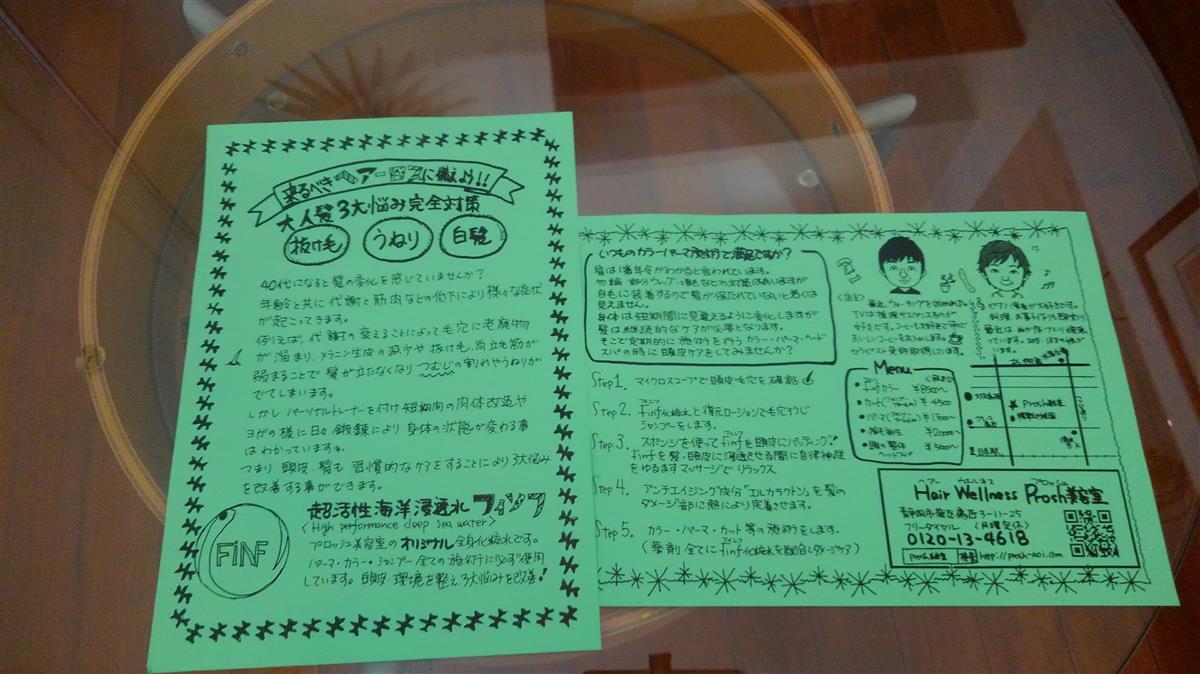 来るべきヘアーロスに備えよう!!
大人髪3大悩み完全対策
抜け毛 うねり 白髪
40代になると髪の変化を感じていませんか?
年齢と共に代謝と筋肉などの低下により様々な症状
が起こってきます。
例えば、代謝の衰えることによって毛穴に老廃物
が溜まり、メラニン生成の減少や抜け毛、尚立毛筋が
弱まることで髪が立たなくなりつむじの割れやうねりが
でてしまいます。
しかしパーソナルトレーナーを付け短期間の肉体改造や
ヨガの様に日々鍛錬により身体の状態が変わる事
はわかっています。
つまり、頭皮・髪も習慣的なケアをすることにより3大悩み
を改善する事ができます。
超活性海洋浸透水フィンフ
<High performance deep sea water>
プロッシュ美容室のオリジナル全身化粧水です。
パーマ・カラー・シャンプー全ての施術に必ず使用
しています。頭皮環境を整え3大悩みを改善!
FINF
いつものカラー・パーマ施術で満足ですか?
髪は1番年令がわかると言われています。
勿論部分ウィッグ・などの対策は良いますが
自毛に装着するので髪が保たれていないと若くは
見えません。
身体は短期間に見違えるように変化しますが
髪は継続的なケアが必要となります。
そこで定期的に施術を行うカラー・パーマ・ヘッド
スパの時に頭皮ケアをしてみませんか?
Step1. マイクロスコープで頭皮・毛穴を確認
Step2. finf化粧水と復元ローションで毛穴そうじ
シャンプーをします。
Step3. スポンジを使ってfinfを頭皮にパッティング!
finfを髪・頭皮に浸透させる間に自律神経
をゆるますマッサージでリラックス
Step4. アンチエイジング成分「エルカラクトン」を髪の
ダメージ部に熱により定着させます。
Step5. カラー・パーマ・カット等の施術をします。
(薬剤全てにfinf化粧水を配合しダメージケア)
<店主>
最近ウォーキングを始めました
TVは推理サスペンスものが
好きです。コーヒーも大好きで
おいしいコーヒーを
セラピスト
ピアノ演奏が大好きです。
料理
最近は
Menu
カラー ¥8500〜
カット ¥4500
パーマ
¥5000〜
ヘッドスパ
Prosh
ヘアー ウエルネス プロッシュ
Hair Wellness Prosh美容室
静岡市葵区鷹匠3-11-25
フリーダイヤル 〈月曜定休〉
0120-13-4618
prosh美容室 検索 http://prosh-aoi.com